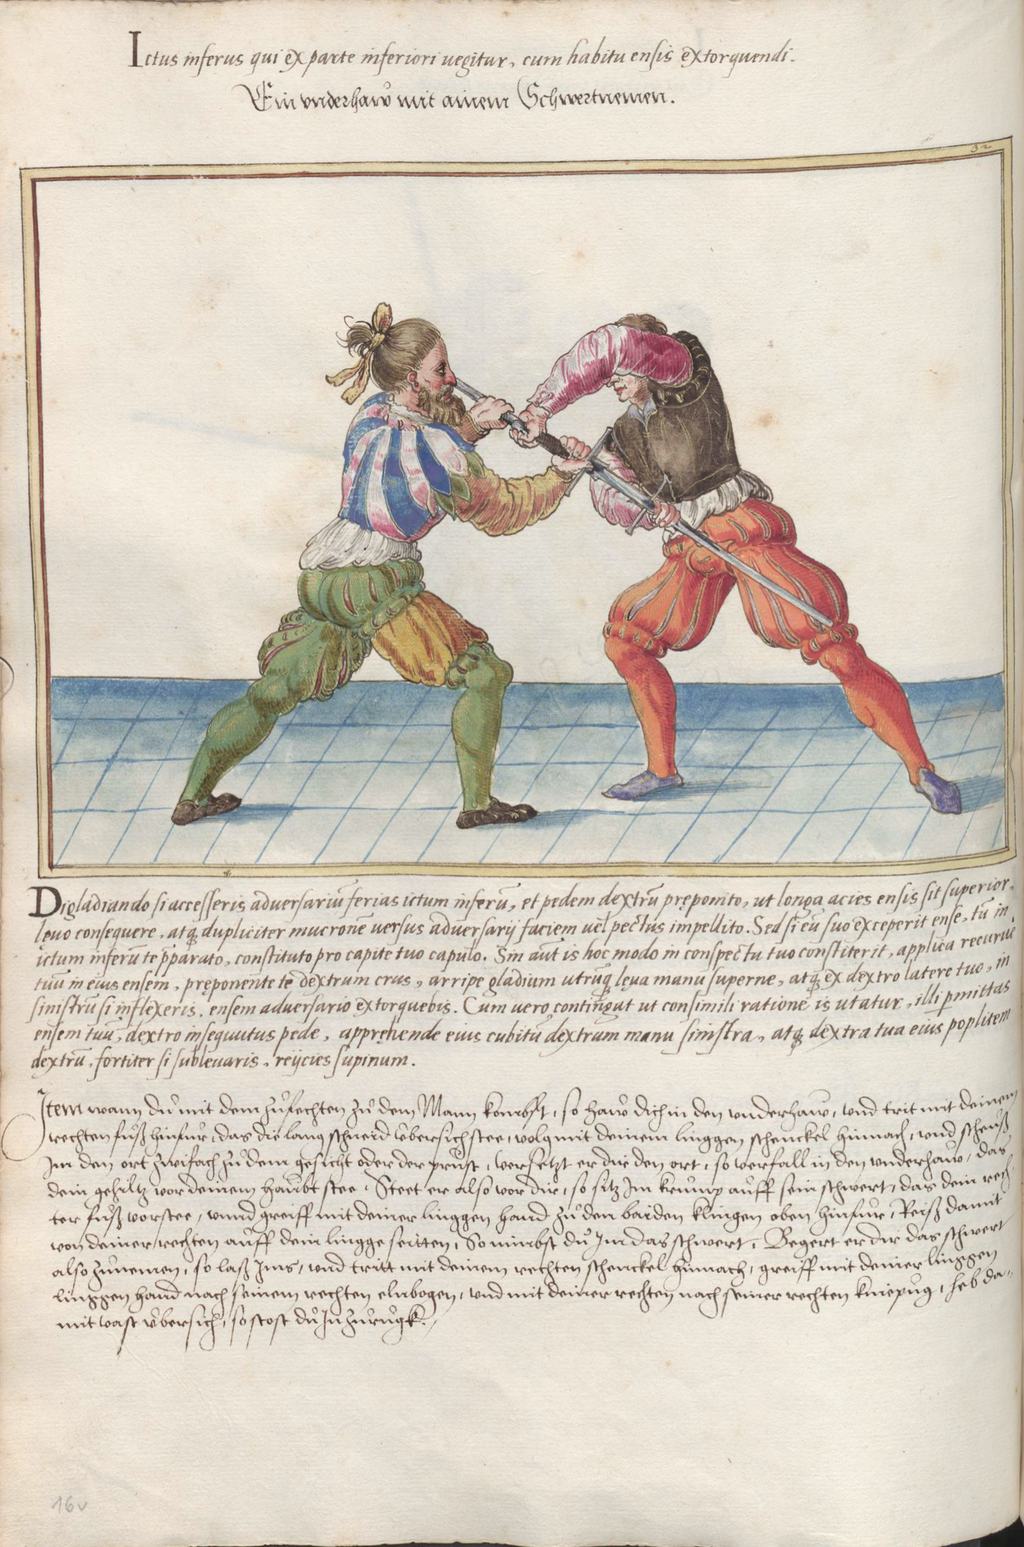 Ictus inferus qui ex parte inferiori uegitur, cum habitu ensis extorquendi.
Ein vnderhaw mit ainem Schwertnemen.
32
Digladiando si accesseris adversariũ ferias ictum inferũ, et pedem dextrũ preponito, ut longa acies ensis sit superior,
levo consequere, atq dupliciter mucronẽ versus adversarij faciem vel pectus impellito. Sed si eũ suo exceperit ense, tũ in
ictum inferũ te pparato, constituto pro capite tuo capulo. Sin aũt is hoc modo in conspectu tuo constiterit, applica recurvũ
tuũ in eius ensem, preponente te dextrum crus, arripe gladium utrũq leva manu superne, atq ex dextro latere tuo, in
sinistrũ si inflexeris, ensem adversario extorquebis. Cum vero contingat ut consimili ratione is utatur, illi pmittas
ensem tuũ, dextro insequutus pede, apprehende eius cubitũ dextrum manu sinistra, atq dextra tua eius poplitem
dextrũ, fortiter si sublevaris, reijcies supinum.
Item wann du mit dem zufechten zu dem Mann kombst, so haw dich in den vnderhaw, vnd trit mit deinem
rechten fuß hinfur, das die lang schneid vbersich stee, volg mit deinem linggen schenckel hinnach, vnd scheuß
Im den ort zwifach zu dem gesicht oder der prust, versetzt er dir den ort, so verfall in den vnderhaw, das
dein gehiltz vor deinem haubt stee. Steet er also vor dir, so sitz Im krump auff sein schwert, das dein rech
ter fuß vorstee, vnnd greiff mit deiner linggen hand zu den baiden klingen oben hinfur, Reiß damit
von deiner rechten auff dein lingge seitten, So nimbst du Im das schwert, Begert er dir das schwert
also zunemen, so laß Ims, vnd tritt mit deinem rechten schenckel hinnach, greiff mit deiner linggen
linggen hand nach seinem rechten elnbogen, vnd mit deiner rechten nach seiner rechten kniepug, heb da-
mit vast vbersich, so stost du In zurugk.
16v